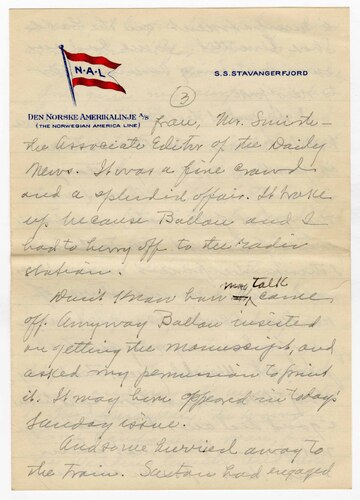 N-A-L
S.S. STAVANGERFJORD
(3)
DEN NORSKE AMERIKALINJE A/S
(THE NORWEGIAN AMERICA LINE)
Mr. Smith-
the Associate Editor of the Daily
News. It was a fine crowd
and a splendid affair. It broke
up because Ballou and I
had to hurry off to the radio
station.
Don't know how my talk came
off. Anyway Ballou insisted
on getting the manuscript, and
asked my permission to print
it. It may have appeared in today's
Sunday issue.
And so we hurried away to
the train. Saxton had engaged